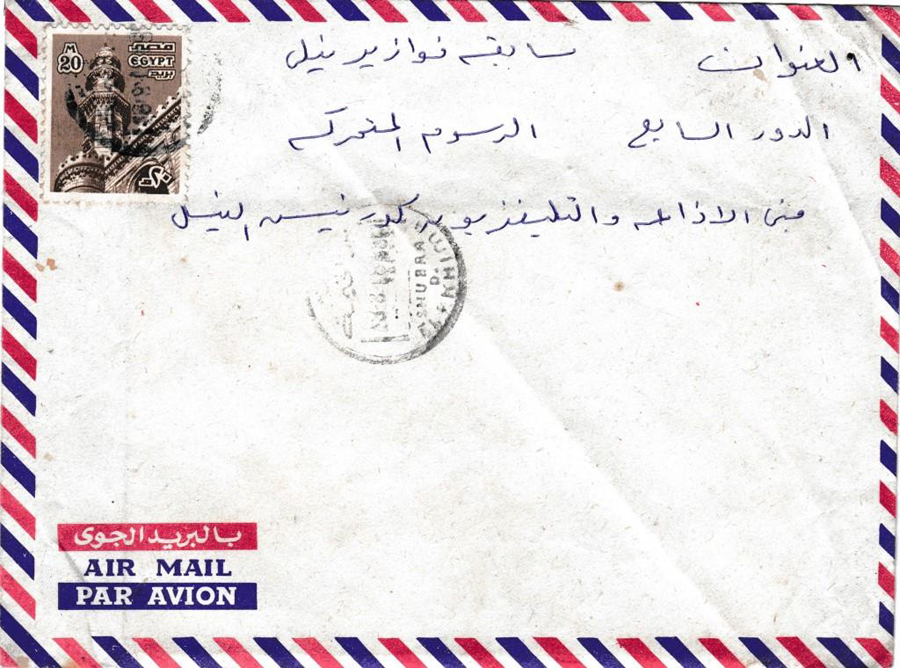 M
20
مصر
EGYPT
بريد
العنوان سابقه فوازير نيللى
الدور السابع الرسوم المتحركه
مبنى الاذاعه والتليفزيون كورنيش النيل
SHUBRA EL KHIMA
بالبريد الجوى
AIR MAIL
PAR AVION